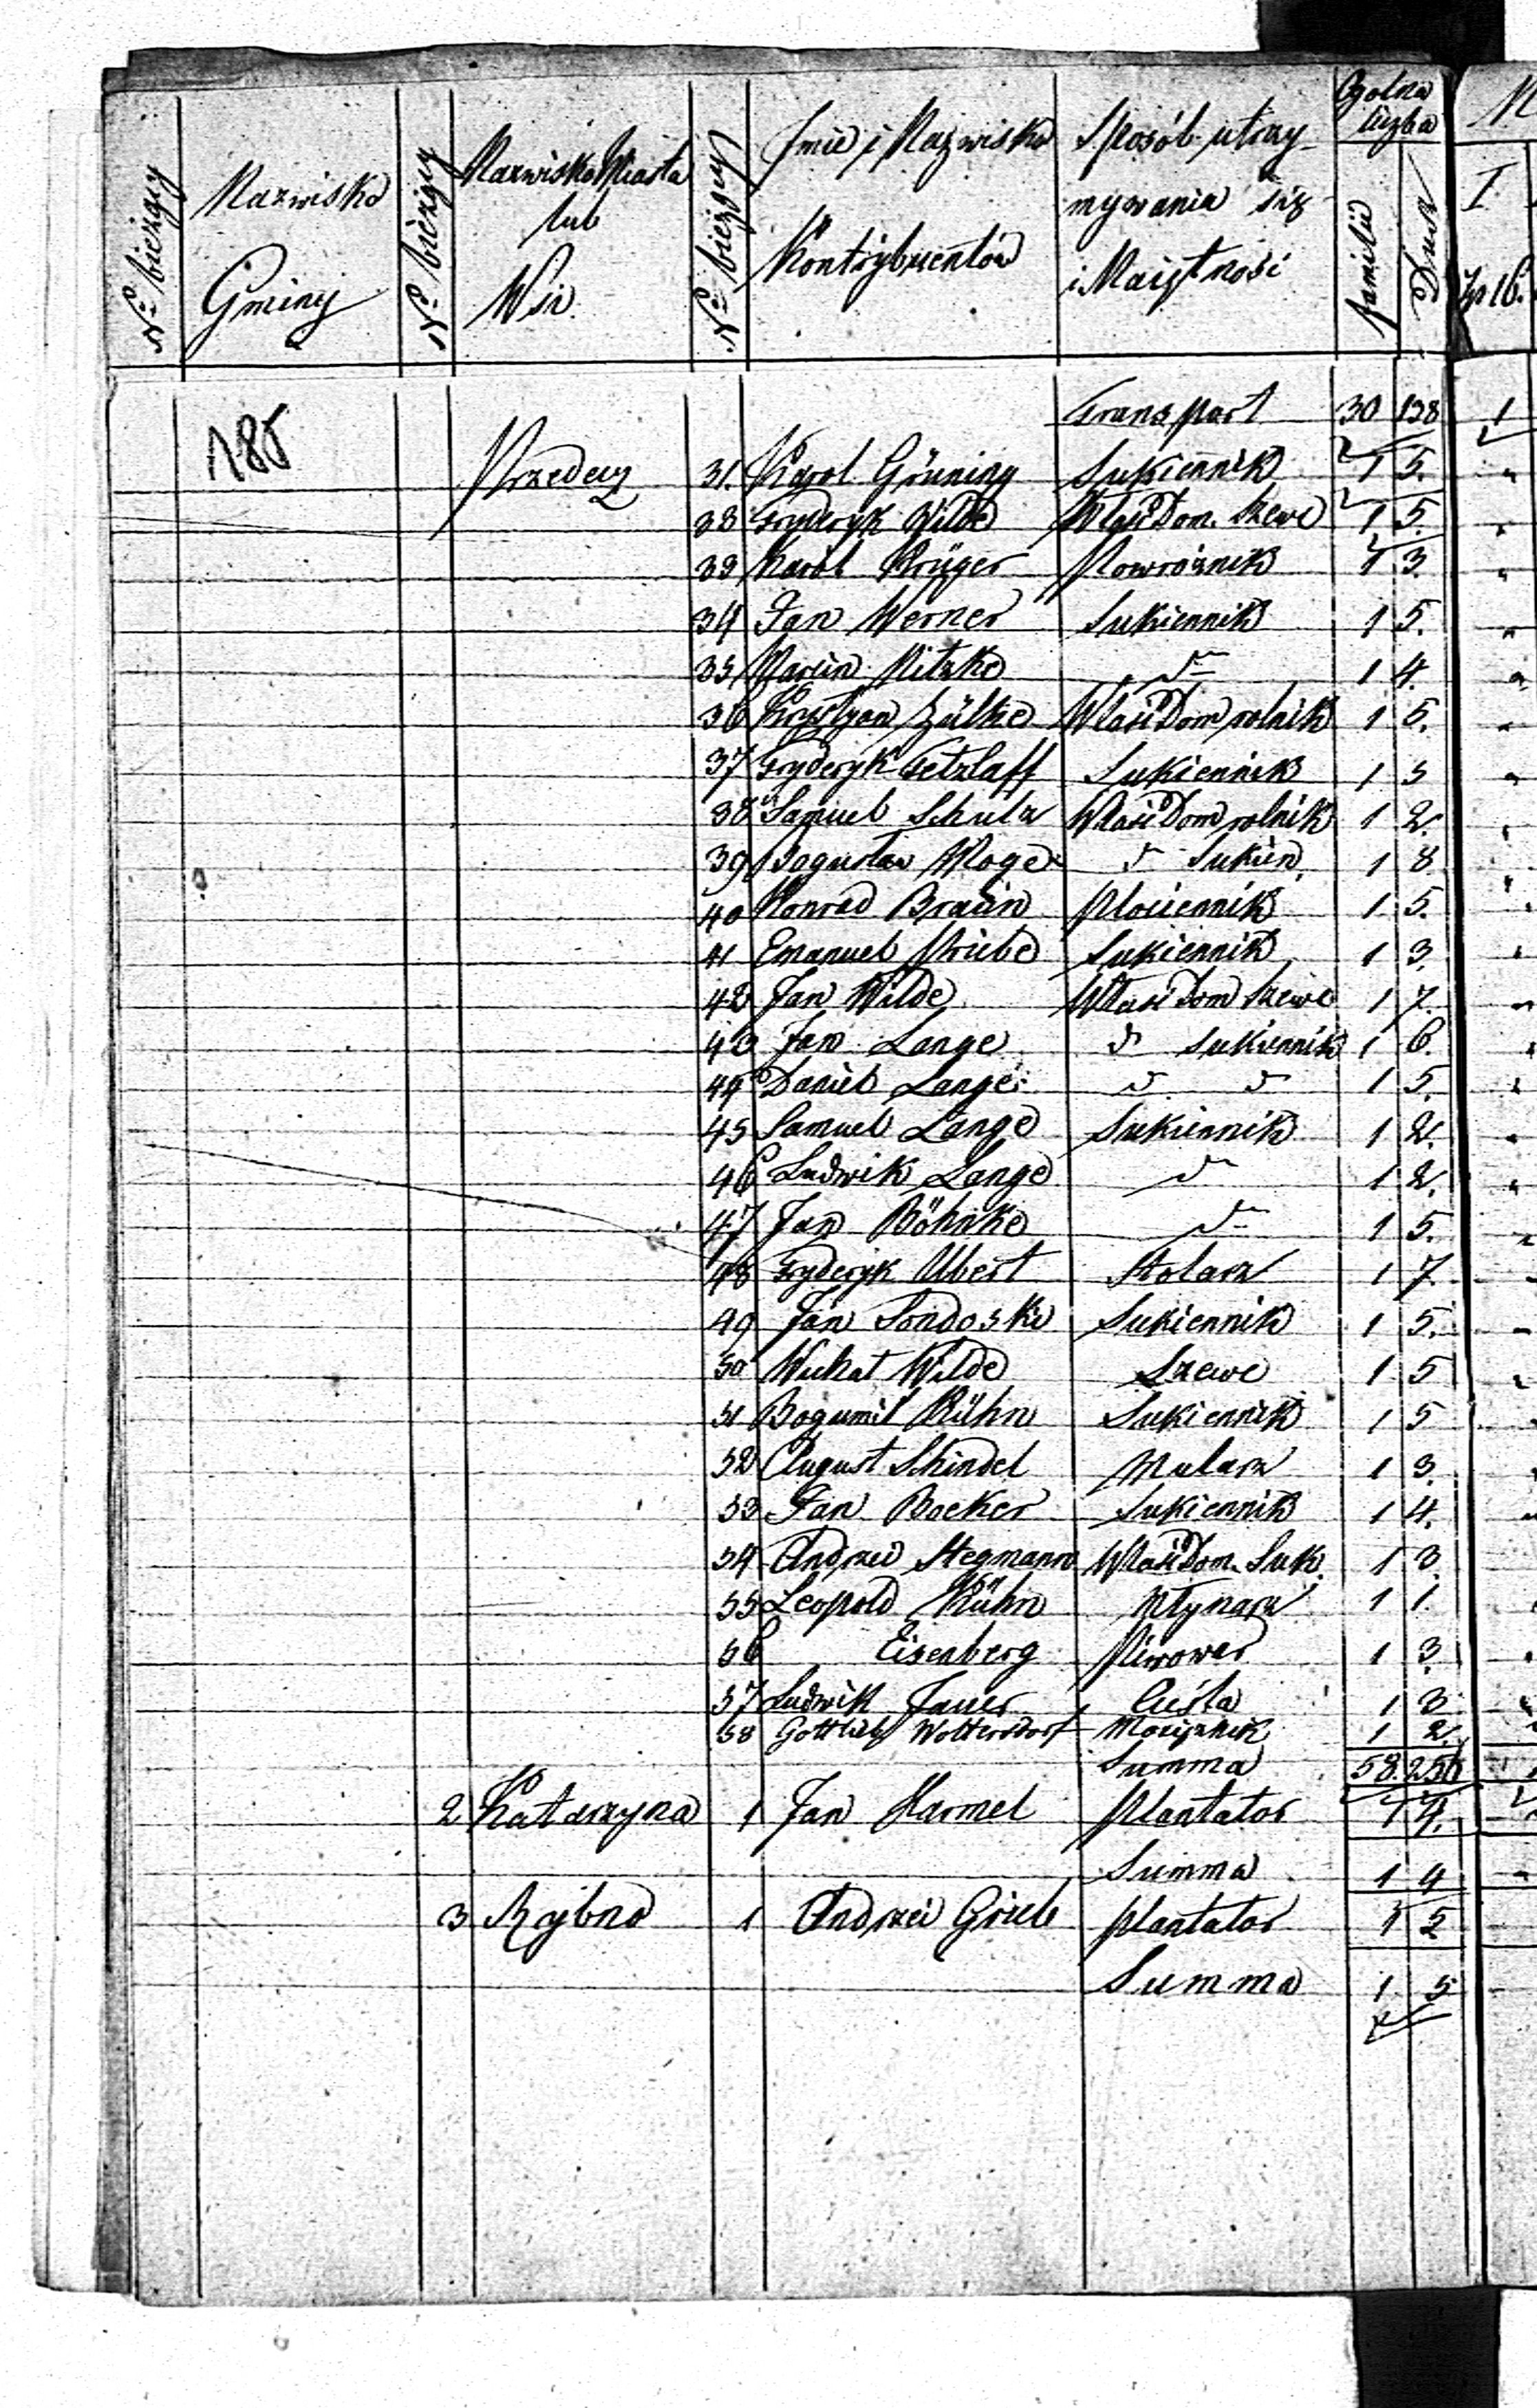 Nº bieżący
Nazwisko Gminy
Nº bieżący
Nazwisko Miasta lub Wsi
Nº bieżący
Imie i Nazwisko Kontrybuentów
Sposób utrzymywania się i Maiętności
Ogólna liczba
familii
Dusz
N
I
Transport 30 138 1
185 Przedecz 31. Karol Grüning Sukiennik 1 5.
32 Fryderyk Wilde Właść Dom. Szewc 1 5.
33 Karol Krüger Powroźnik 1 3.
34 Jan Werner Sukiennik 1 5.
35 Marcin Nitzke d- 1 4.
36 Krystyan Zülke Właść Dom rolnik 1 5.
37 Fryderyk Tetzlaff Sukiennik 1 5
38 Samuel Schulz Właść Dom rolnik 1 2.
39 Bogusław d Sukien. 1 8
40 Konrad Braun Płóciennik 1 5.
41 Emanuel Priebe Sukiennik 1 3.
42 Jan Wilde Właść Dom Szewc 1 7.
43 Jan Lange d Sukiennik 1 6.
44 Daniel Lange d d 1 5.
45 Samuel Lange Sukiennik 1 2.
46 Ludwik Lange d 1 2.
47 Jan Böhnke d- 1 5.
48 Fryderyk Ubert Stolarz 1 7
49 Jan Sondoski Sukiennik 1 5.
50 Wilde Szewc 1 5
51 Bogumił Kühn Sukiennik 1 5
52 August Schindel Mularz 1 3.
53 Jan Boeker Sukiennik 1 4.
54 Andrzei Stegmann Właść Dom. Suk. 1 3.
55 Leopold Kühn Młynarz 1 1.
56 Eisenberg Piwowar 1 3.
57 Ludwik Jauer Cieśla 1 3
58 Gottlieb Woltersdorf Mosiężnik 1 2.
Summa 58. 256
2 Katarzyna 1 Jan Harmel Plantator 1 4.
Summa 1 4
3 Rybno 1 Andrzei Grieb Plantator 1 5
Summa 1 5